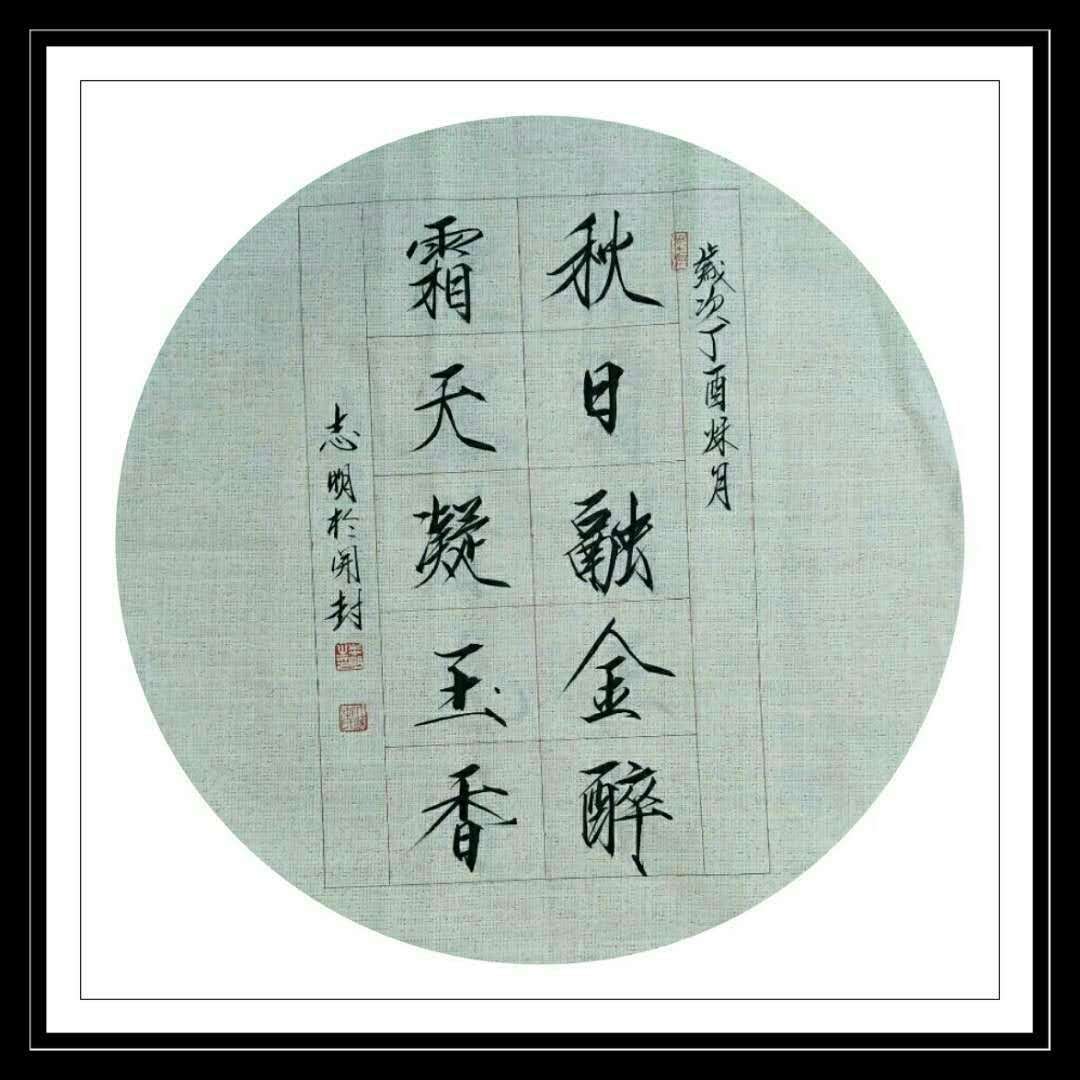 歲次丁酉秌月
秋日融金醉
霜天凝玉香
志明於開封